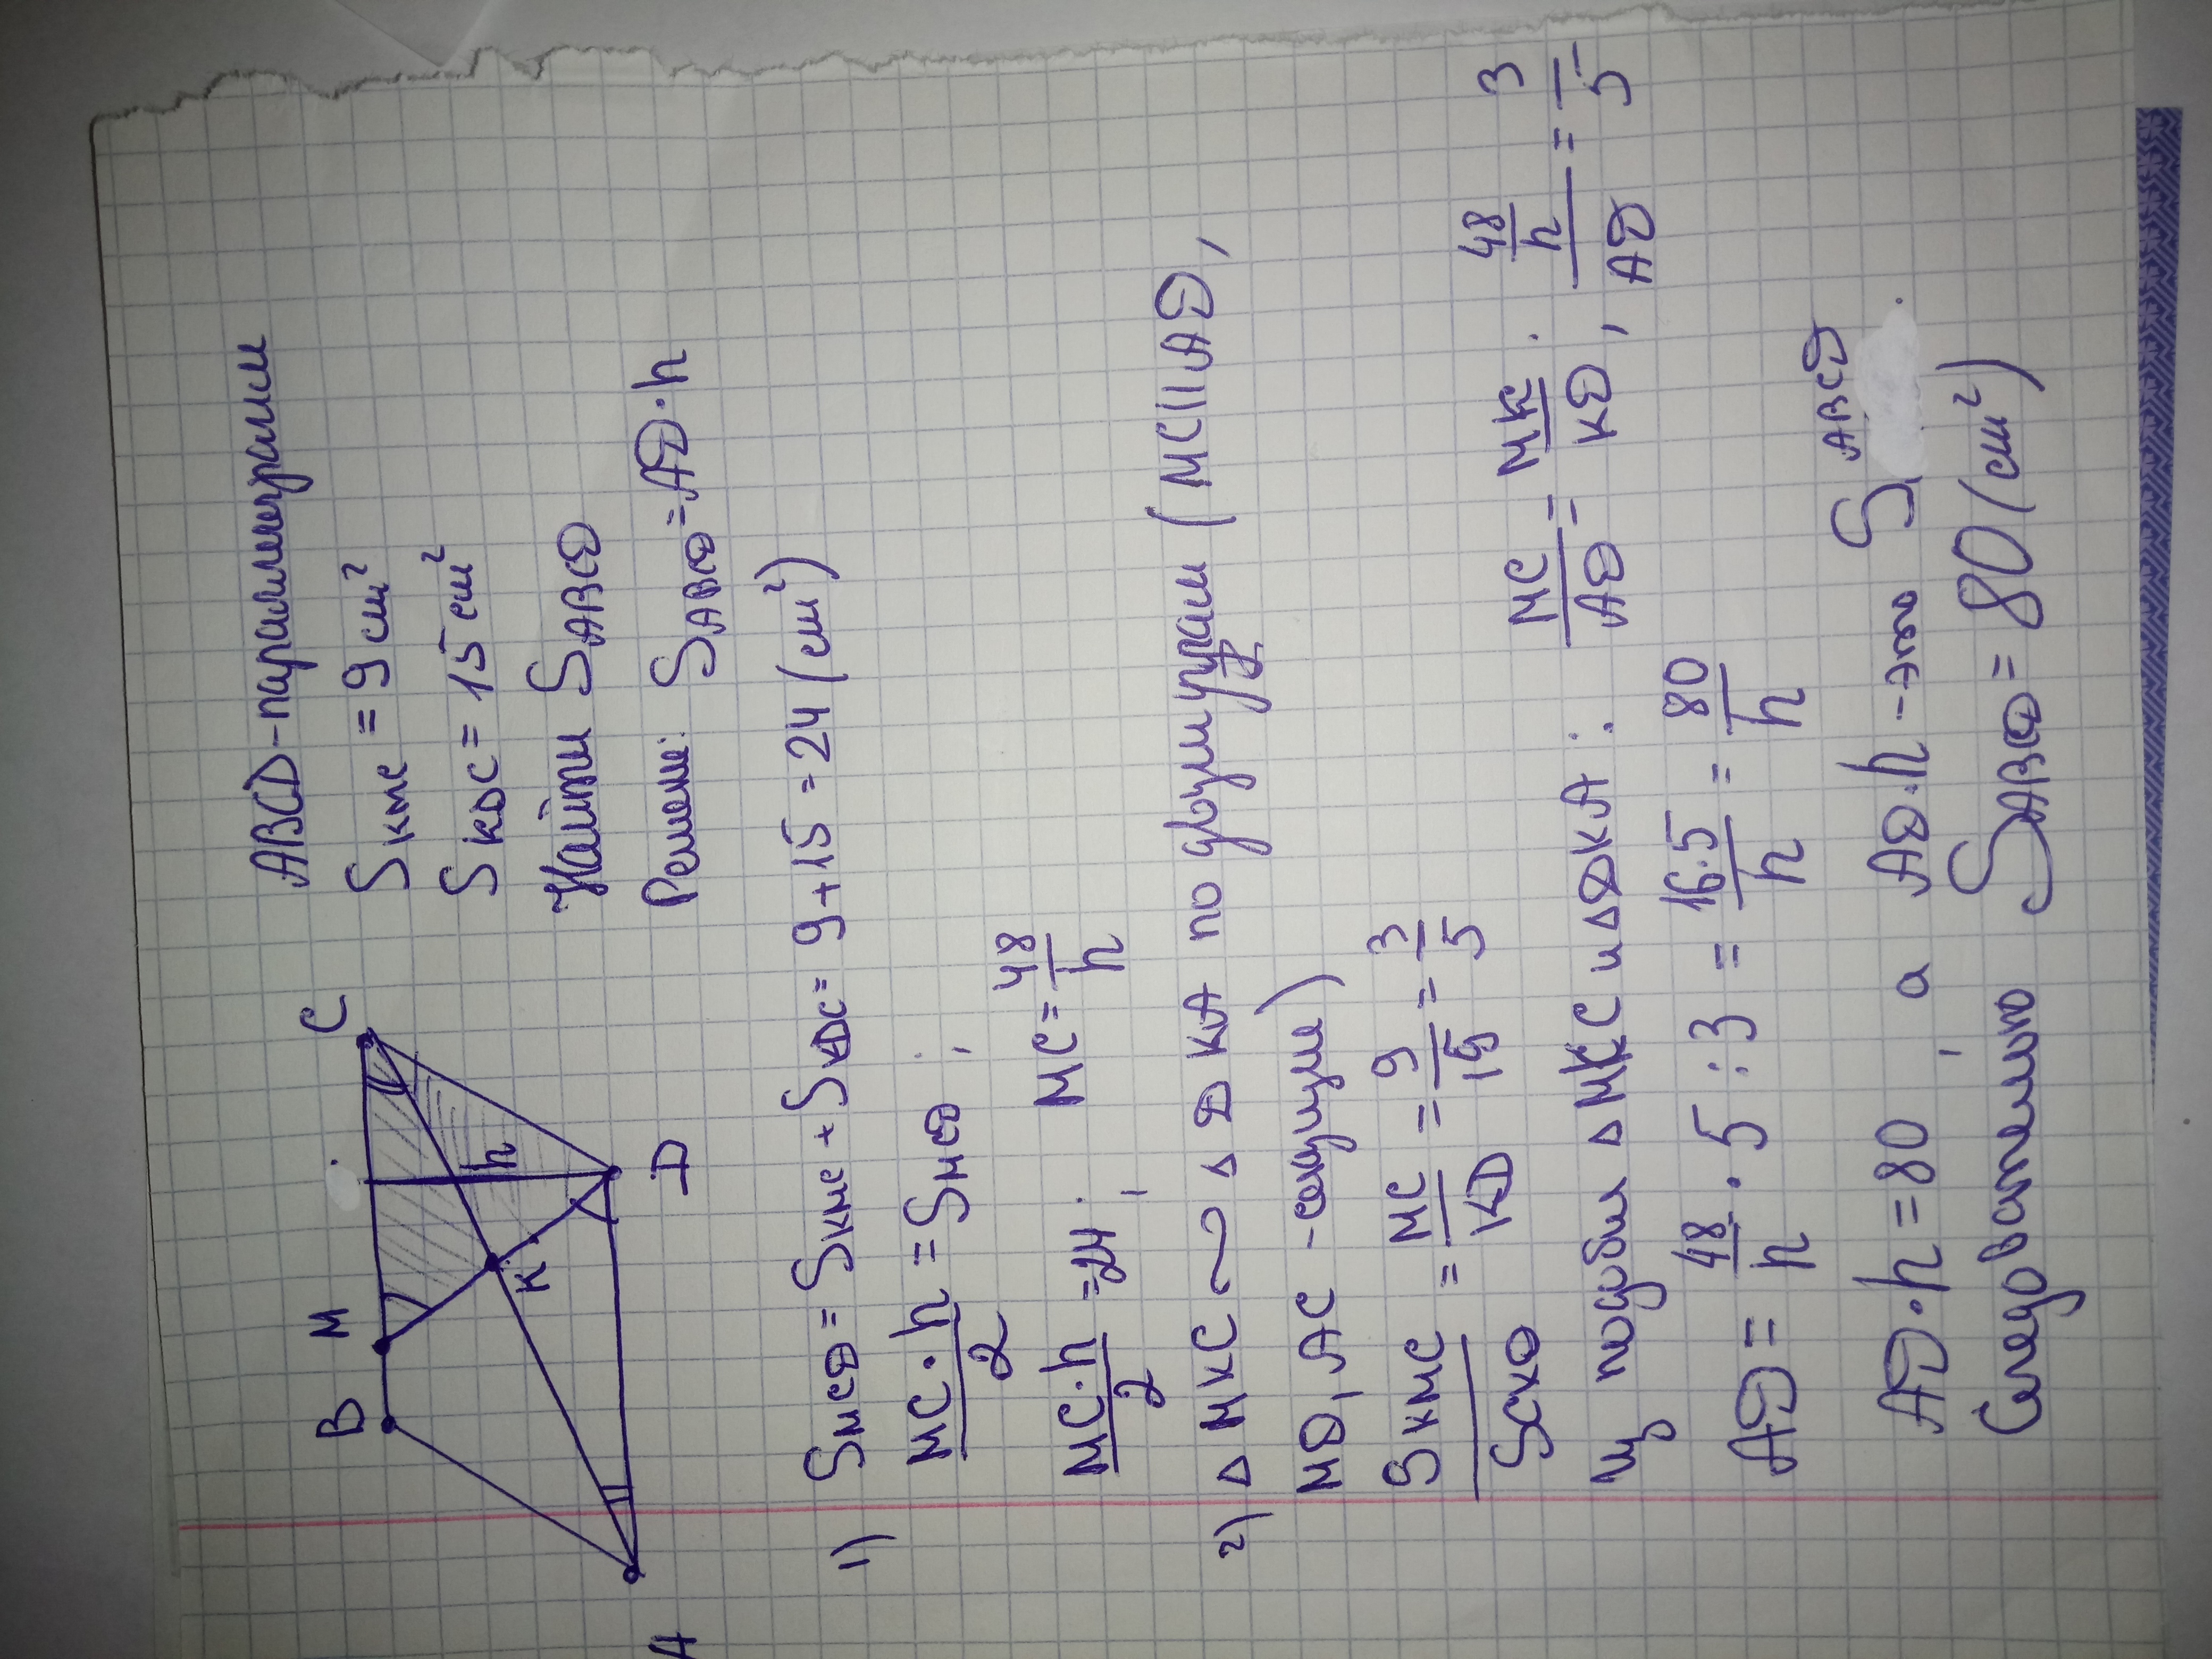 ABCD-параллелграмм
S KMC = 9 см²
S KDC = 15 см²
Найти S ABCD
Решение: S ABCD = AD·h
B M C
K h
A D
1) S MCD = S KMC + S KDC = 9+15 = 24 (см²)
MC·h/2 = S MCD ;
MC·h/2 = 24 ; MC = 48/h
2) △ MKC ∽ △ DKA по двум углам (MC||AD,
MD, AC - секущие)
S KMC / S CKD = MC/KD = 9/15 = 3/5
Из подобия △ MKC и △ DKA : MC/AD = MK/KD , 48/h / AD = 3/5
AD = 48/h · 5 : 3 = 16·5/h = 80/h
AD·h = 80 , а AD·h - это S ABCD .
Следовательно S ABCD = 80 (см²)